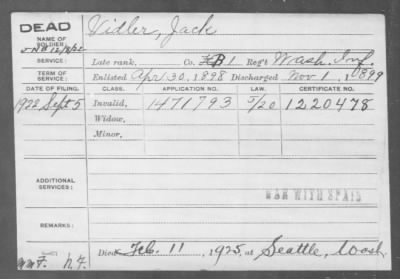 DEAD Vidler, Jack
NAME OF SOLDIER:
SERVICE: Late rank, Co. B 1 Reg't Wash. Inf.
TERM OF SERVICE: Enlisted Apr 30, 1898 Discharged Nov 1, 1899
DATE OF FILING. CLASS. APPLICATION NO. LAW. CERTIFICATE NO.
1922 Sept 5 Invalid, 1471793 5/20 1220478
Widow,
Minor,
ADDITIONAL SERVICES:
WAR WITH SPAIN
REMARKS:
Died Feb. 11, 1925, at Seattle, Wash.
N.F.